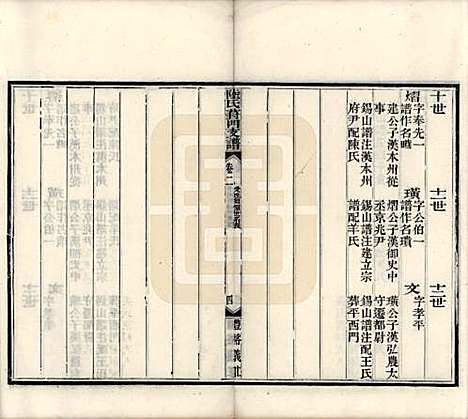 十世
熠字奉先一
譜作名疇
建公子漢本州從
事
錫山譜注漢本州
府尹配陳氏
十一世
璜字公伯一
譜作名瓆
熠公子漢御史中
丞京兆尹
錫山譜注建立宗
譜配羊氏
十二世
文字孝平
璜公子漢弘農太
守遷都尉
錫山譜注配王氏
葬平西門
陸氏葑門支譜
卷二
四
豐裕義莊